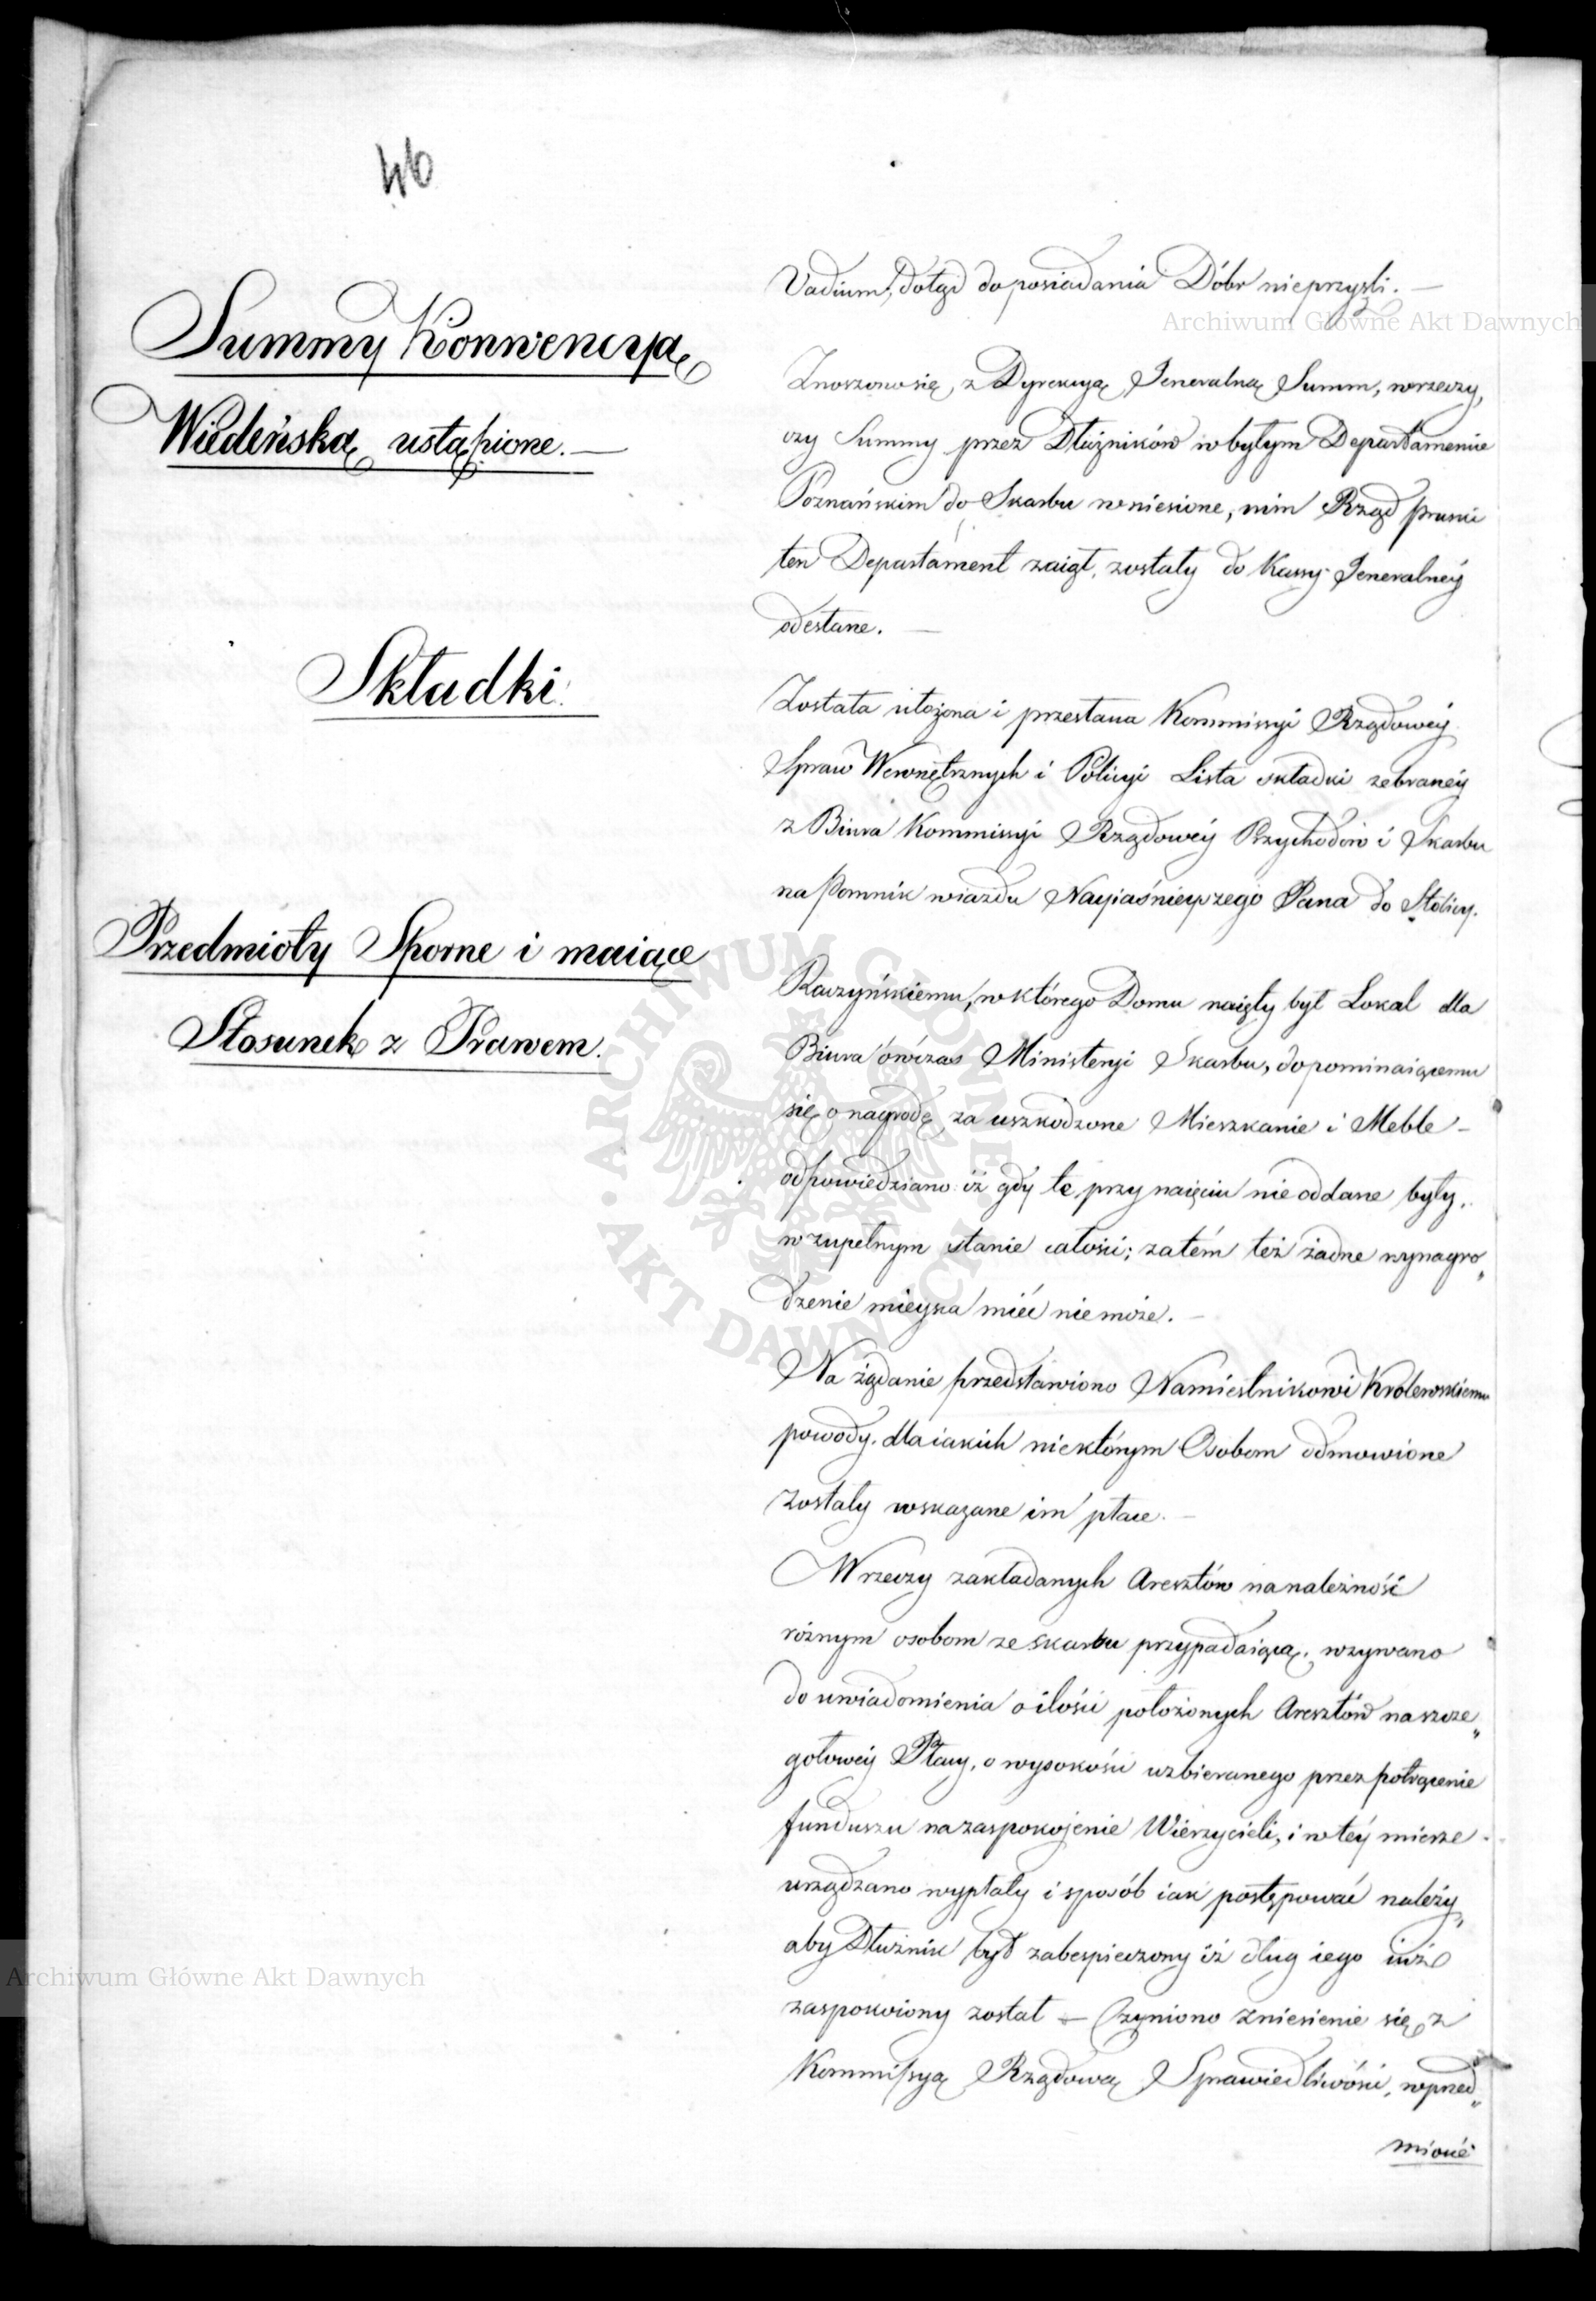 46
Vadium, dotąd do posiadania Dóbr nieprzyszli. —
Summy Konwencyą
Wiedeńską ustąpione. —
Znoszono się, z Dyrekcyą Jeneralną Summ, wrzeczy,
czy Summy przez Dłużników w byłym Departamencie
Poznańskim do Skarbu wniesione, nim Rząd pruski
ten Departament zaiął, zostały do Kassy Jeneralnéy
odesłane. —
Składki.
Została ułożona i przesłana Kommissyi Rządowéy
Spraw Wewnętrznych i Policyi Lista składki zebranéy
z Biura Kommissyi Rządowéy Przychodów i Skarbu
na Pomnik wiazdu Nayiaśnieyszego Pana do Stolicy.
Przedmioty Sporne i maiące
Stosunek z Prawem.
Raczyńskiemu, w którego Domu naięty był Lokal dla
Biura ówczas Ministeryi Skarbu, dopominaiącemu
się o nagrodę za uszkodzone Mieszkanie i Meble —
odpowiedziano iż gdy te przy naięciu nie oddane były,
w zupełnym stanie całości; zatém też żadne wynagro„
dzenie mieysca mieć nie może. —
Na żądanie przedstawiono Namiestnikowi Krolewskiemu
powody, dla iakich niektórym Osobom odmowione
zostały wskazane im płace. —
W rzeczy zakładanych Aresztów na należność
róznym osobom ze skarbu przypadaiącą, wzywano
do uwiadomienia o ilości położonych Aresztów na szcze„
gołowéy Płacy, o wysokości uzbieranego przez potrącenie
funduszu na zaspokojenie Wierzycieli, i w téy mierze
urządzano wypłaty i sposób iak postępować należy,
aby Dłużnik był zabespieczony iż dług iego iuż
zaspokoiony został — Czyniono zniesienie się z
Kommissyą Rządową Sprawiedliwości, wprzed„
miocie
Archiwum Główne Akt Dawnych
Archiwum Główne Akt Dawnych
ARCHIWUM GŁÓWNE
AKT DAWNYCH